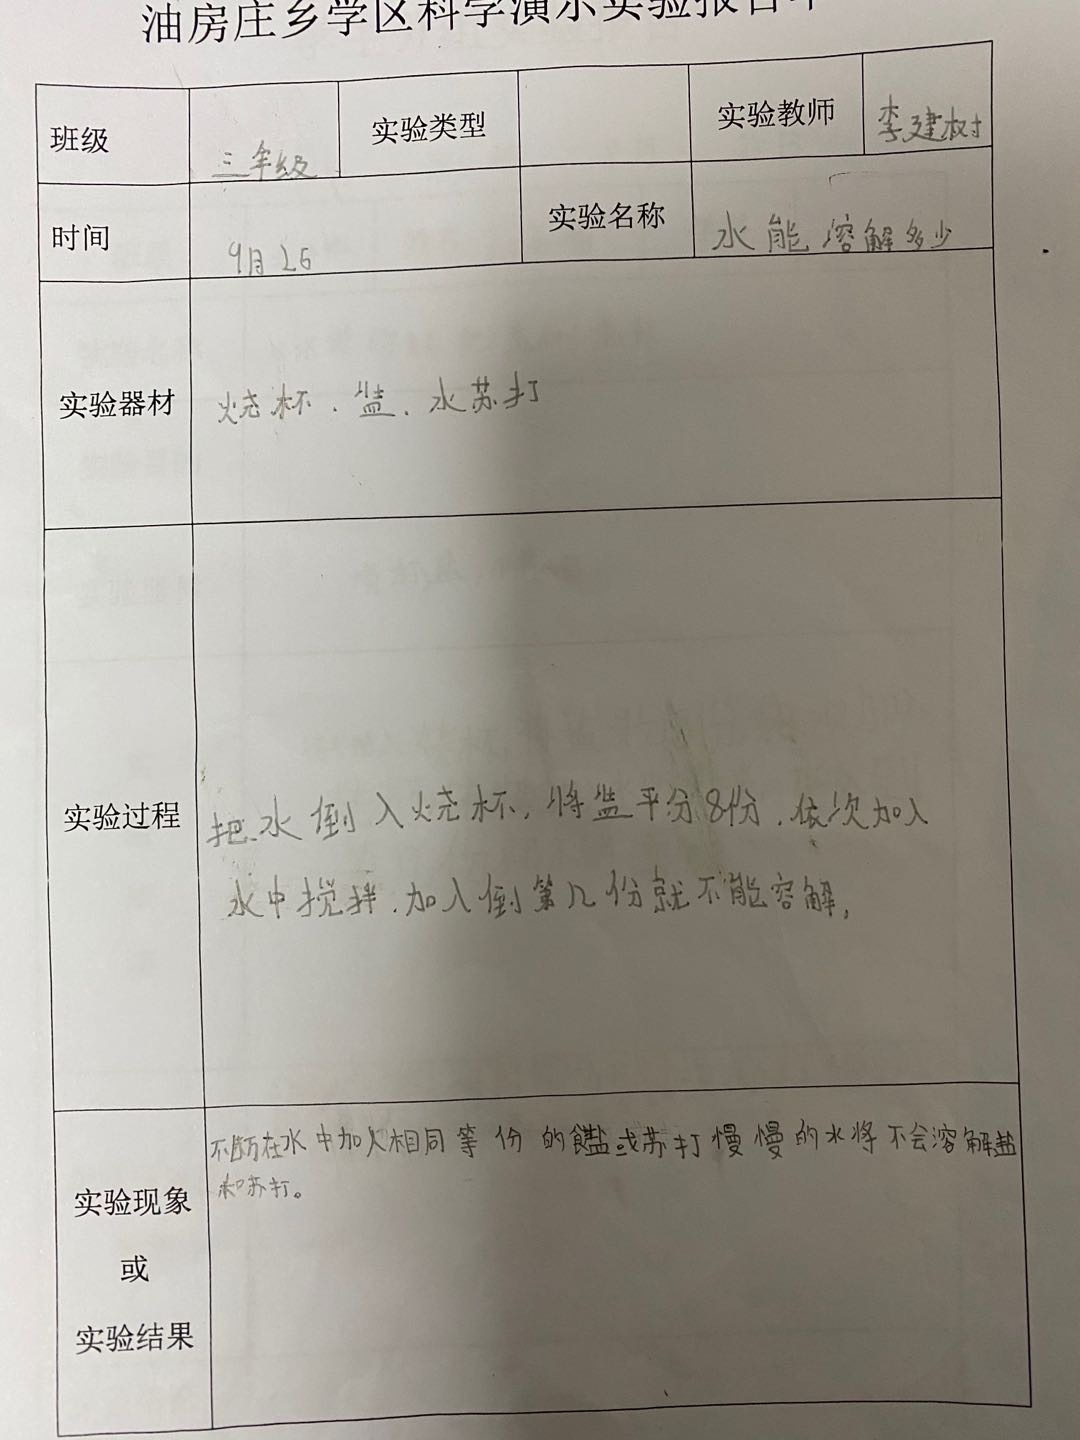 油房庄乡学区科学演示实验报告单
班级 三年级 实验类型 实验教师 李建树
时间 9月26 实验名称 水能溶解多少
实验器材 烧杯、盐、水苏打
实验过程
把水倒入烧杯,将盐平分8份,依次加入
水中搅拌,加入倒第几份就不能容解,
不断在水中加入相同等份的盐或苏打慢慢的水将不会溶解盐
和苏打。
实验现象
或
实验结果